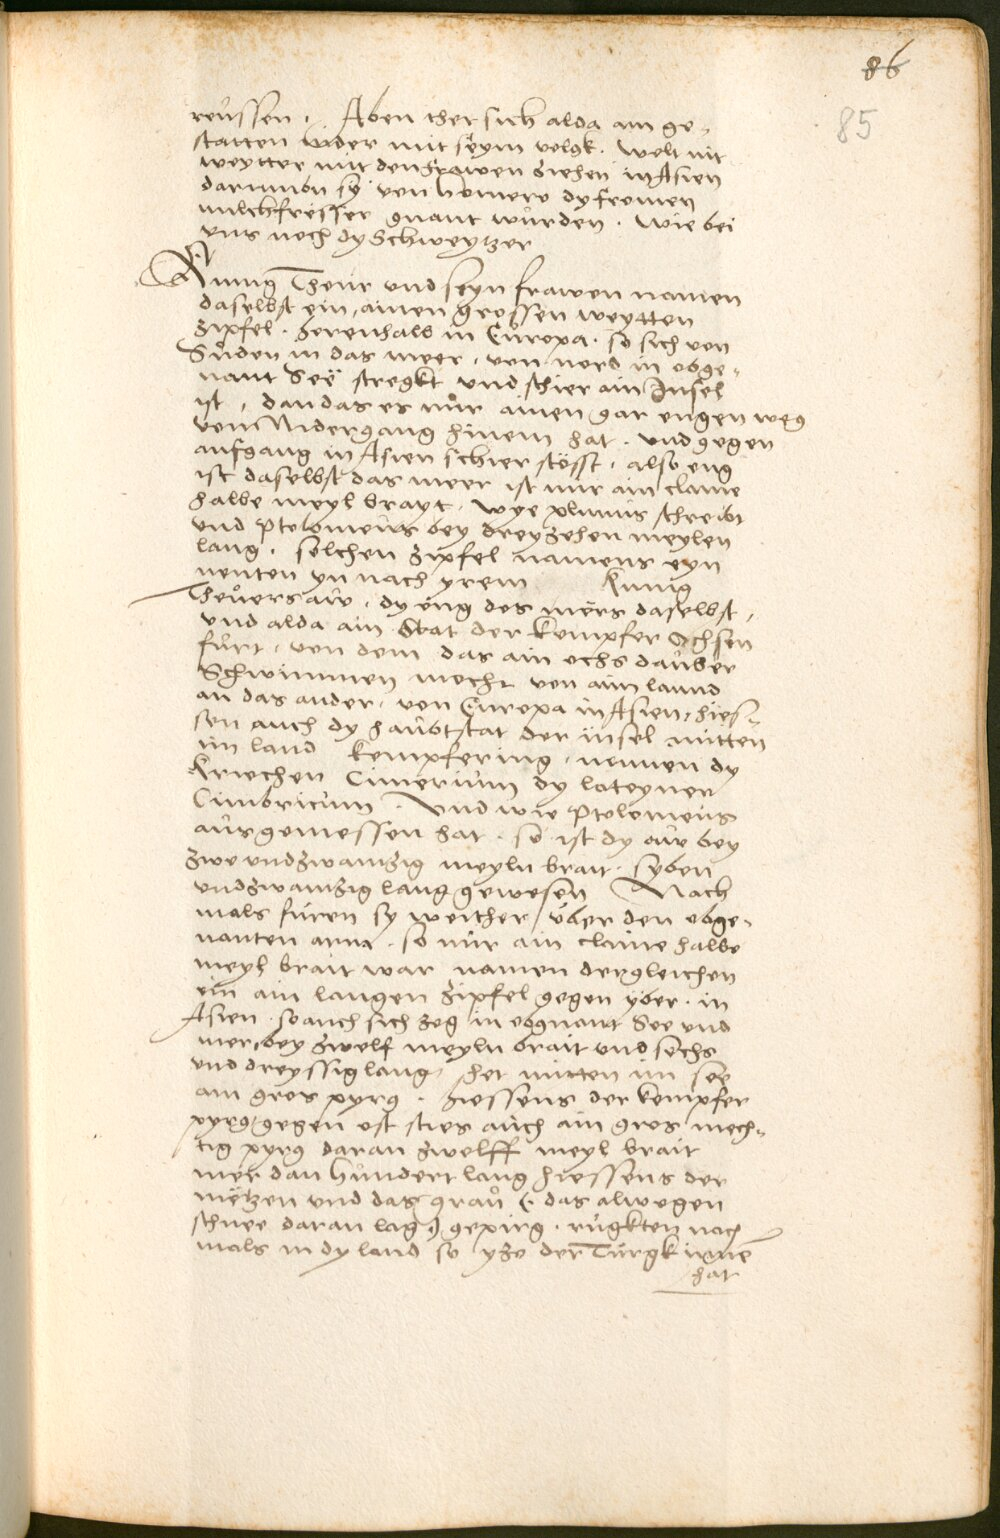 86
85
reussen. Aben ther sich alda am ge-
statten nider mit seym volgk. Wolt nit
weytter mit den frawen ziehen in Asien
darumbn sy von homero dy fromen
milchfresser gnant wurden. Wie bei
vns noch dy Schweytzer
Kunig Theur vnd seyn frawen namen
daselbst ein, ainen grossen weytten
zipfel. herenhalb in Europa. so sich von
Suden in das meer, von nord in obge-
nant See stregkt vnd schier ain Insel
ist, dan das es nur ainen gar engen weg
vom Nidergang hinein hat. vnd gegen
aufgang in Asien schier stösst, also eng
ist daselbst das meer ist nur ain claine
halbe meyl brayt. wye plinius schreibt
vnd Ptolomeus bey dreyzehen meylen
lang. solchen zipfel namens eyn
nenten yn nach yrem Kunig
Theuersaw, dy eng des mers daselbst,
vnd alda ain Stat der Kempfer Ochsen
furt, von dem das ain ochs dauber
Schwimmen mecht von aim lannd
an das ander, von Europa in Asien, hies-
sen auch dy haubtstat der insel mitten
im land Kempfering, nennen dy
Kriechen Cimerium dy lateyner
Cimbricum. Vnd wie Ptolemeus
ausgemessen hat. so ist dy aw bey
zwe vndzwainzig meyln brait. syben
vndzwainzig lang gewesen Nach
mals furen sy weither vber den obge-
nanten arm. so nur ain claine halbe
meyl brait war namen dergleichen
ein ain langen zipfel gegen yber. in
Asien. so auch sich zog in obgnant See vnd
mer, bey zwelf meyln brait vnd sechs
vnd dreyssig lang, het mitten im see
ain gros pyrg. hiessens der Kempfer
pyrg, gegen ost sties auch ain gros mech-
tig pyrg daran zwelff meyl brait
mer dan hundert lang hiessens der
metzen vnd das grau (. das alwegen
schnee daran lag.) gepirg. rugkten nach
mals in dy land so yze der Turgk inne
hat